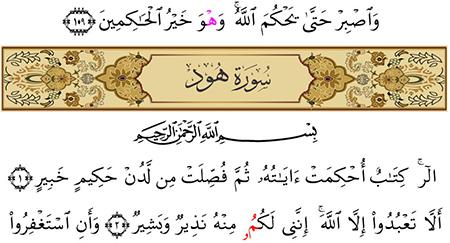 وَٱصۡبِرۡ حَتَّىٰ يَحۡكُمَ ٱللَّهُۚ وَهۡوَ خَيۡرُ ٱلۡحَٰكِمِينَ ١٠٩
سُورَةُ هُود
بِسۡمِ ٱللَّهِ ٱلرَّحۡمَٰنِ ٱلرَّحِيمِ
الٓرۚ كِتَٰبٌ أُحۡكِمَتۡ ءَايَٰتُهُۥ ثُمَّ فُصِّلَتۡ مِن لَّدُنۡ حَكِيمٍ خَبِيرٍ ١
أَلَّا تَعۡبُدُوٓاْ إِلَّا ٱللَّهَۚ إِنَّنِي لَكُمُۥ مِنۡهُ نَذِيرٞ وَبَشِيرٞ ٢ وَأَنِ ٱسۡتَغۡفِرُواْ